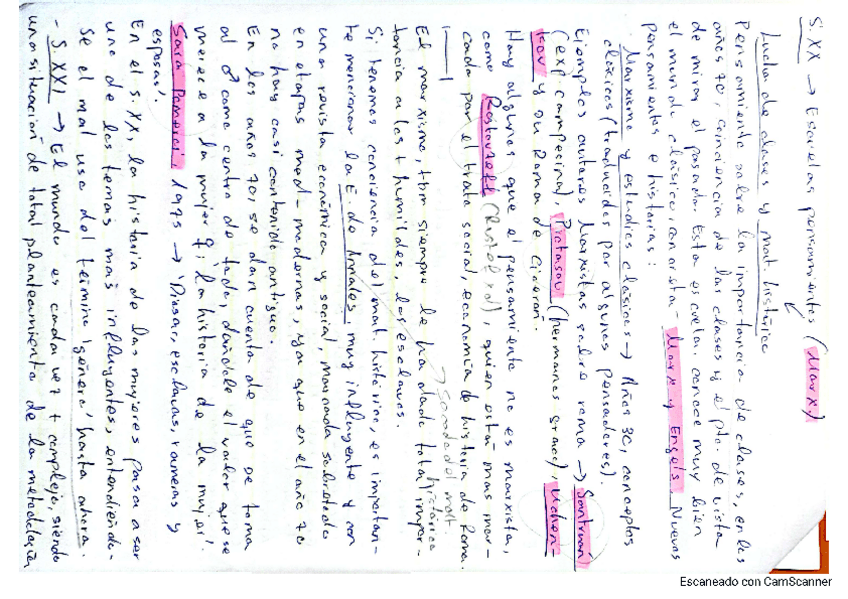 S. XX → Escuelas pensamientos (Marx)
Lucha de clases y mat. histórico
Pensamiento sobre la importancia de clases, en los
años 70, coincidencia de las clases y el pto. de vista
de mirar el pasado. Esta escuela conoce muy bien
el mundo clásico, con arista - Marx y Engels. Nuevos
pensamientos e historias:
Marxismo y estudios clásicos → Años 30, conceptos
clásicos (traducidos por algunos pensadores)
Ejemplos autores Marxistas sobre roma →
(exp campesina), (hermanos graco),
y su Roma de Ciceron.
Hay algunos que el pensamiento no es marxista,
como Rostovzeff, quien está mas mar-
cado por el trato social, economía de historia de Roma.
→ Sonido del mat. histórico
El marxismo, tbm siempre le ha dado total impor-
tancia a los + humildes, los esclavos.
Si tenemos conciencia del mat. histórico, es importan-
te mencionar la E. de Annales, muy influyente y con
una revista económica y social, marcada sobretodo
en etapas med-modernas, ya que en el año 70
no hay casi contenido antiguo.
En los años 70, se dan cuenta de que se toma
al ♂ como centro de todo, dándole el valor que se
merece a la mujer q; 'la historia de la mujer'.
Sara Pomeroi, 1975 → 'Diosas, esclavas, rameras y
esposas'.
En el s. XX, la historia de las mujeres pasa a ser
uno de los temas más influyentes, entendiendo-
se el mal uso del término 'género' hasta ahora.
- S. XXI → El mundo es cada vez + complejo, siendo
una situación de total planteamiento de la metodología
Escaneado con CamScanner